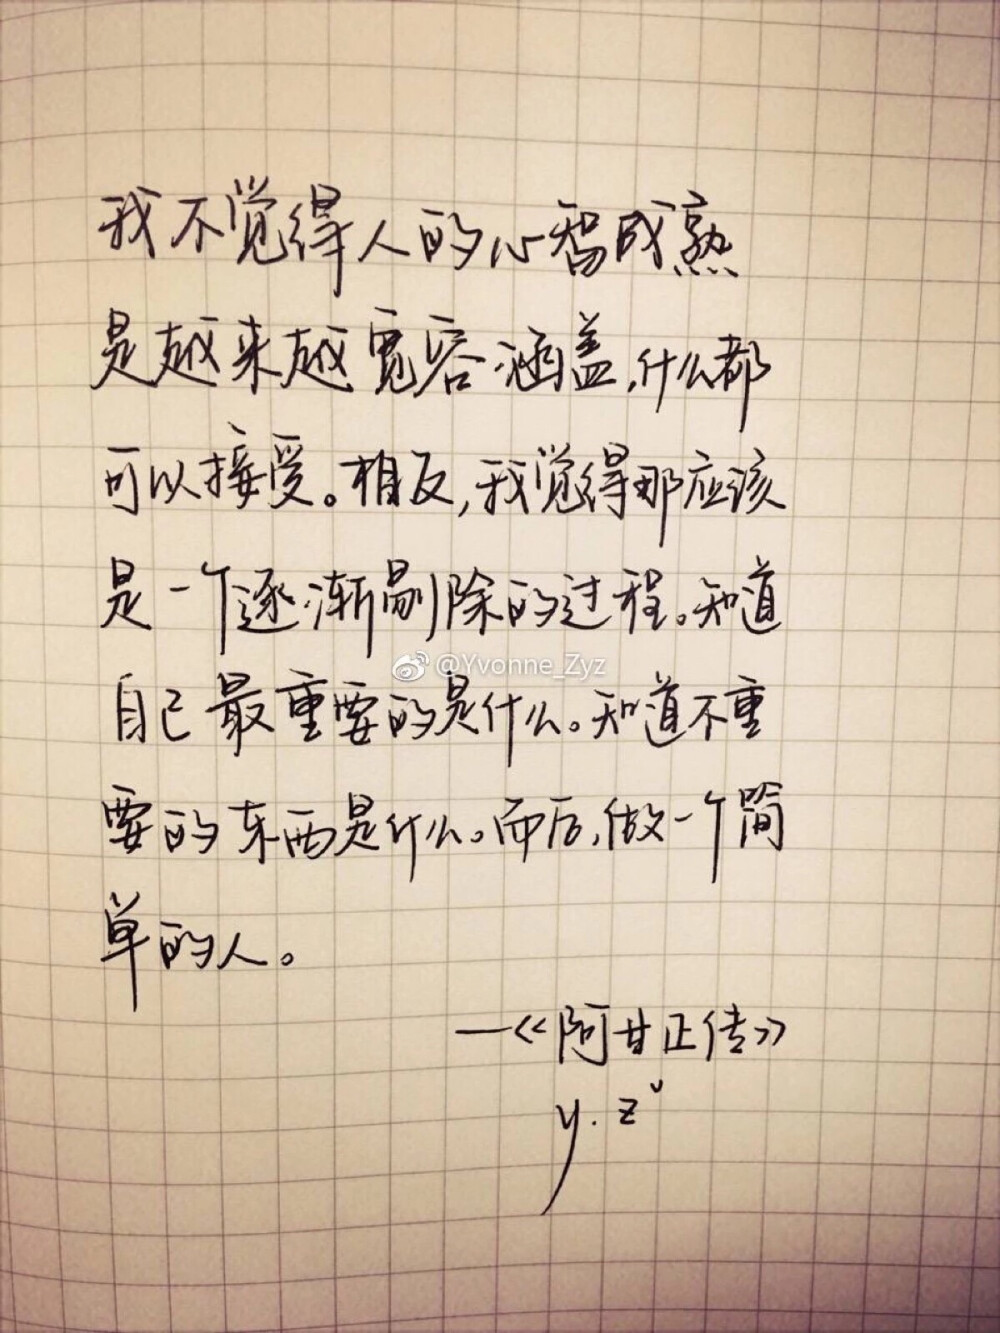 我不觉得人的心智成熟
是越来越宽容涵盖,什么都
可以接受。相反,我觉得那应该
是一个逐渐剔除的过程。知道
@Yvonne_Zyz
自己最重要的是什么。知道不重
要的东西是什么。而后,做一个简
单的人。
—《阿甘正传》
y.z